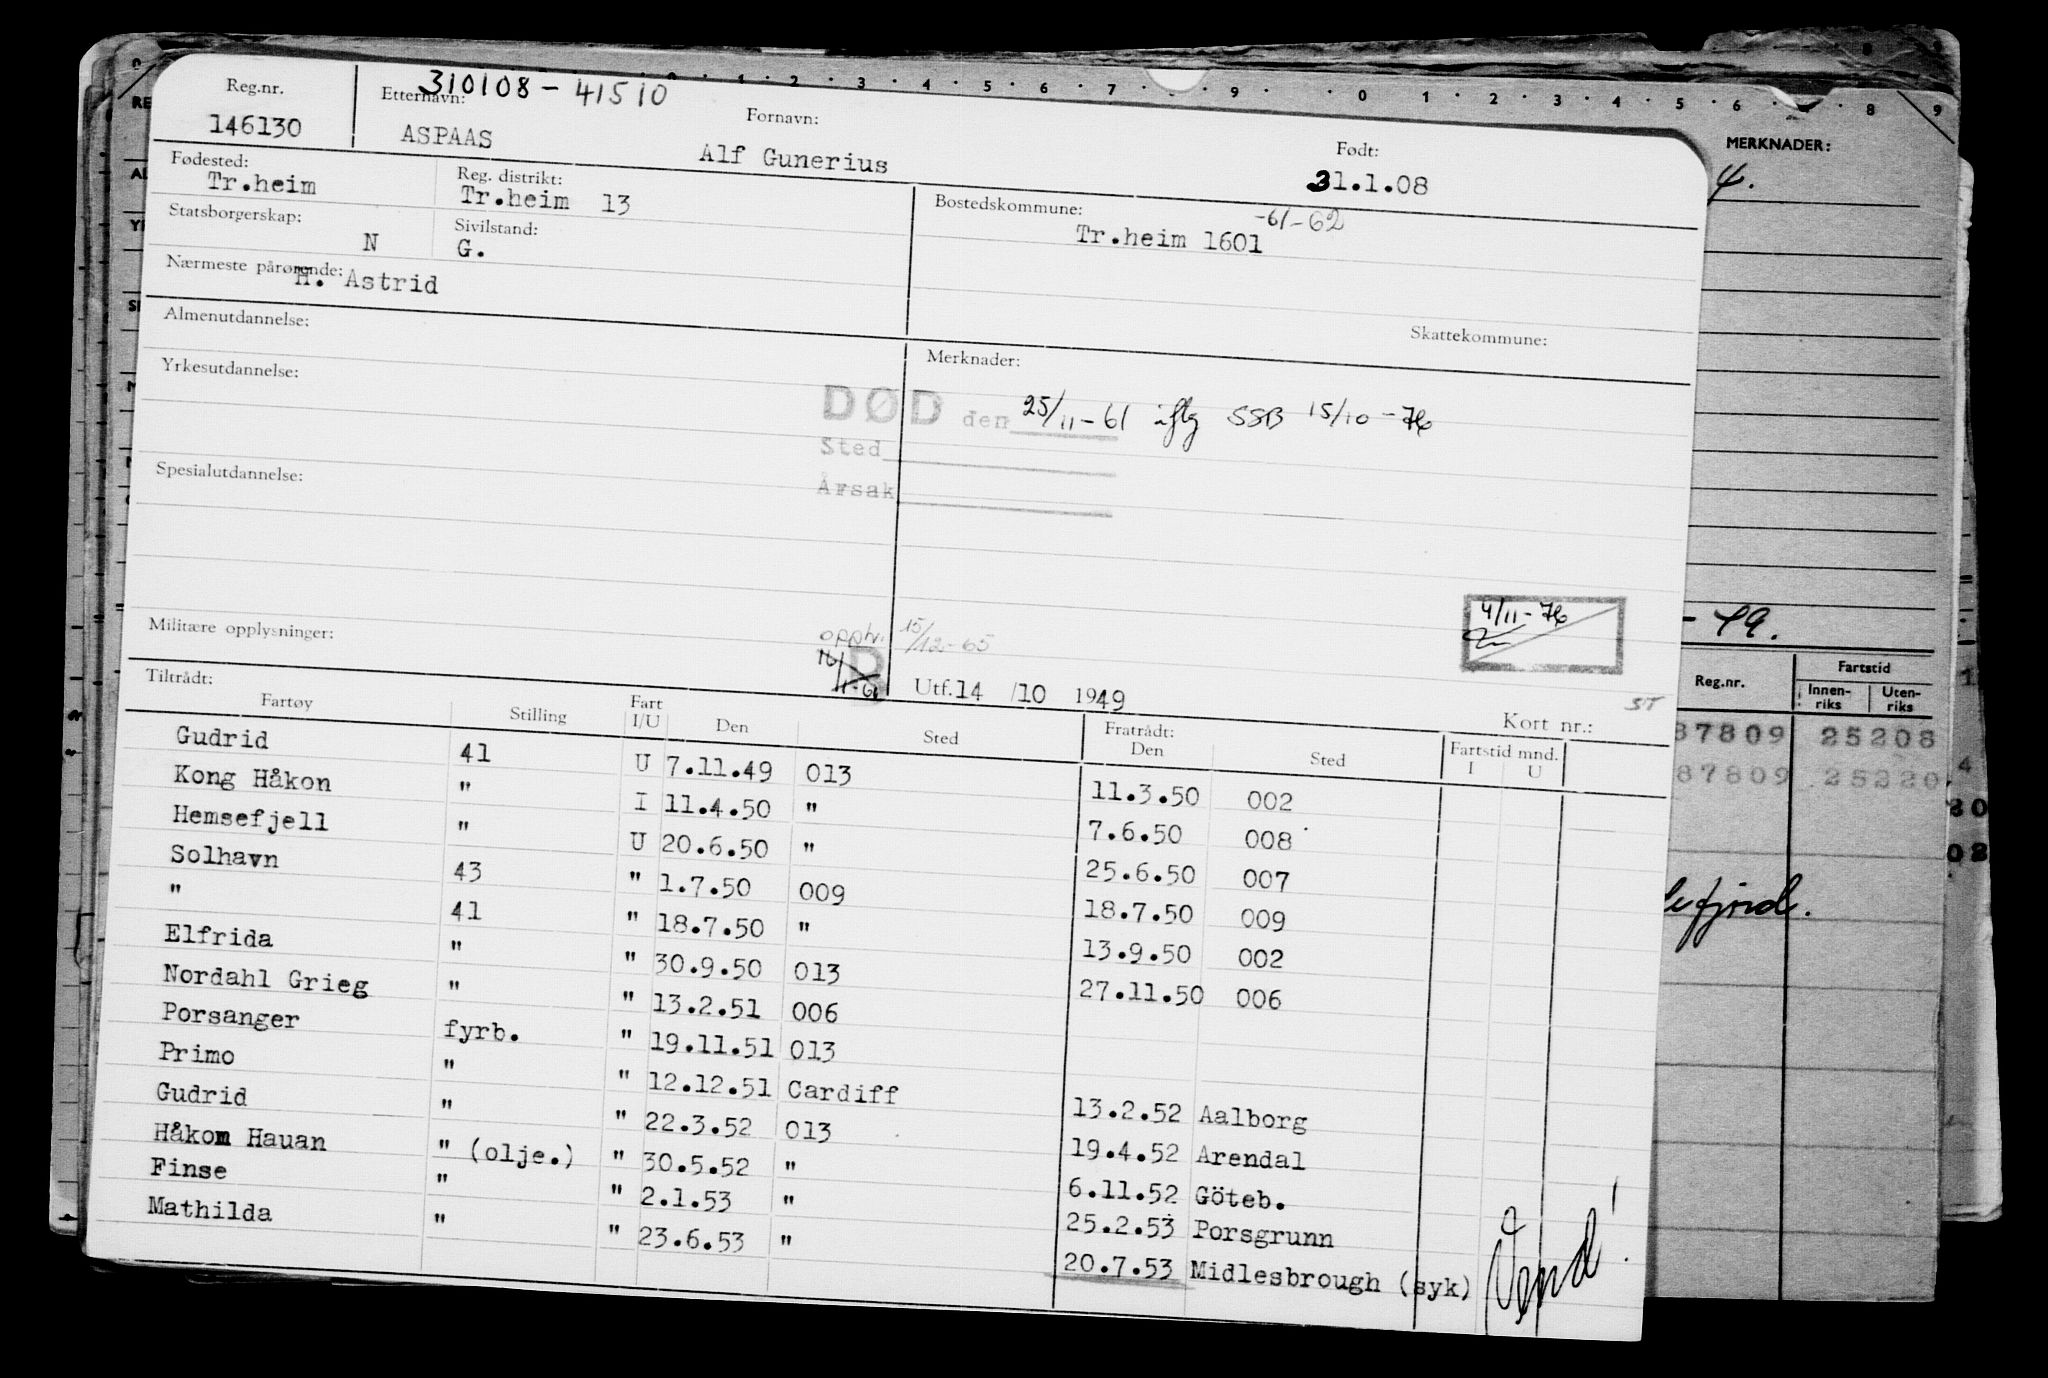 310108 - 41510
Reg.nr. Etternavn: Fornavn: Født:
146130 ASPAAS Alf Gunerius 31.1.08
Fødested: Reg. distrikt: Bostedskommune:
Tr.heim Tr.heim 13 Tr.heim 1601 -61-62
Statsborgerskap: Sivilstand:
N G.
Nærmeste pårørende:
H. Astrid
Almenutdannelse: Skattekommune:
Yrkesutdannelse: Merknader:
DØD den 25/11-61 iflg SSB 15/10-76
Sted
Årsak
Spesialutdannelse:
4/11-76
Militære opplysninger: oppbv. 15/12-65
Utf. 14 /10 1949 Kort nr.: ST
Tiltrådt: Fratrådt: Fartstid mnd.
Fartøy Stilling Fart I/U Den Sted Den Sted I U
Gudrid 41 U 7.11.49 013 11.3.50 002
Kong Håkon " I 11.4.50 " 7.6.50 008
Hemsefjell " U 20.6.50 " 25.6.50 007
Solhavn 43 " 1.7.50 009 18.7.50 009
" 41 " 18.7.50 " 13.9.50 002
Elfrida " " 30.9.50 013 27.11.50 006
Nordahl Grieg " " 13.2.51 006
Porsanger fyrb. " 19.11.51 013
Primo " " 12.12.51 Cardiff 13.2.52 Aalborg
Gudrid " " 22.3.52 013 19.4.52 Arendal
Håkon Hauan " (olje.) " 30.5.52 " 6.11.52 Göteb.
Finse " " 2.1.53 " 25.2.53 Porsgrunn
Mathilda " " 23.6.53 " 20.7.53 Midlesbrough (syk)
Vend!
MERKNADER:
4.
- 49.
Reg.nr. Fartstid
Innen-riks Uten-riks
87809 25208
87809 25220